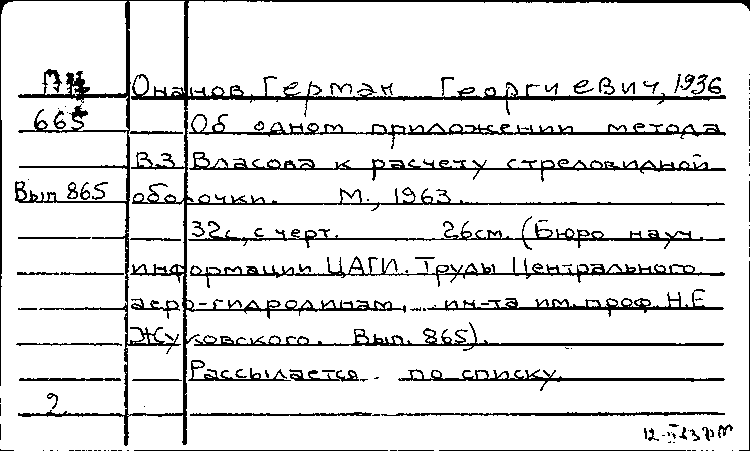 Онанов, Герман Георгиевич, 1936
665 Об одном приложении метода
В.З Власова к расчету стреловидной
Вып 865 оболочки. М., 1963.
32с, с черт. 26см. (Бюро науч.
информации ЦАГИ. Труды Центрального
аеро-гидродинам. ин-та им. проф. Н.Е
Жуковского. Вып. 865).
Рассылается по списку.
2